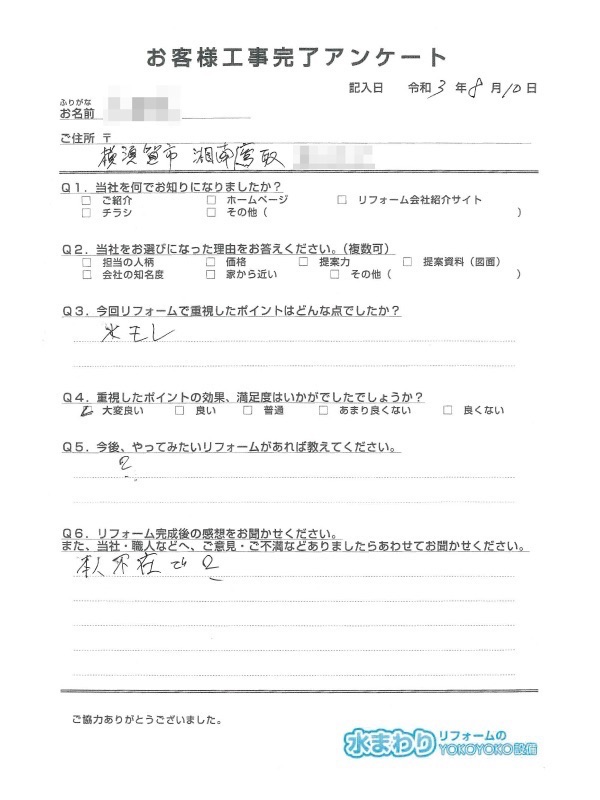 お客様工事完了アンケート
記入日 令和3年8月10日
ふりがな
お名前
ご住所 〒
横須賀市 湘南鷹取
Q1. 当社を何でお知りになりましたか?
□ ご紹介 □ ホームページ □ リフォーム会社紹介サイト
□ チラシ □ その他 ( )
Q2. 当社をお選びになった理由をお答えください。(複数可)
□ 担当の人柄 □ 価格 □ 提案力 □ 提案資料 (図面)
□ 会社の知名度 □ 家から近い □ その他 ( )
Q3. 今回リフォームで重視したポイントはどんな点でしたか?
水モレ
Q4. 重視したポイントの効果、満足度はいかがでしたでしょうか?
☑ 大変良い □ 良い □ 普通 □ あまり良くない □ 良くない
Q5. 今後、やってみたいリフォームがあれば教えてください。
?
Q6. リフォーム完成後の感想をお聞かせください。
また、当社・職人などへ、ご意見・ご不満などありましたらあわせてお聞かせください。
本人不在で?
ご協力ありがとうございました。
水まわりリフォームのYOKOYOKO設備